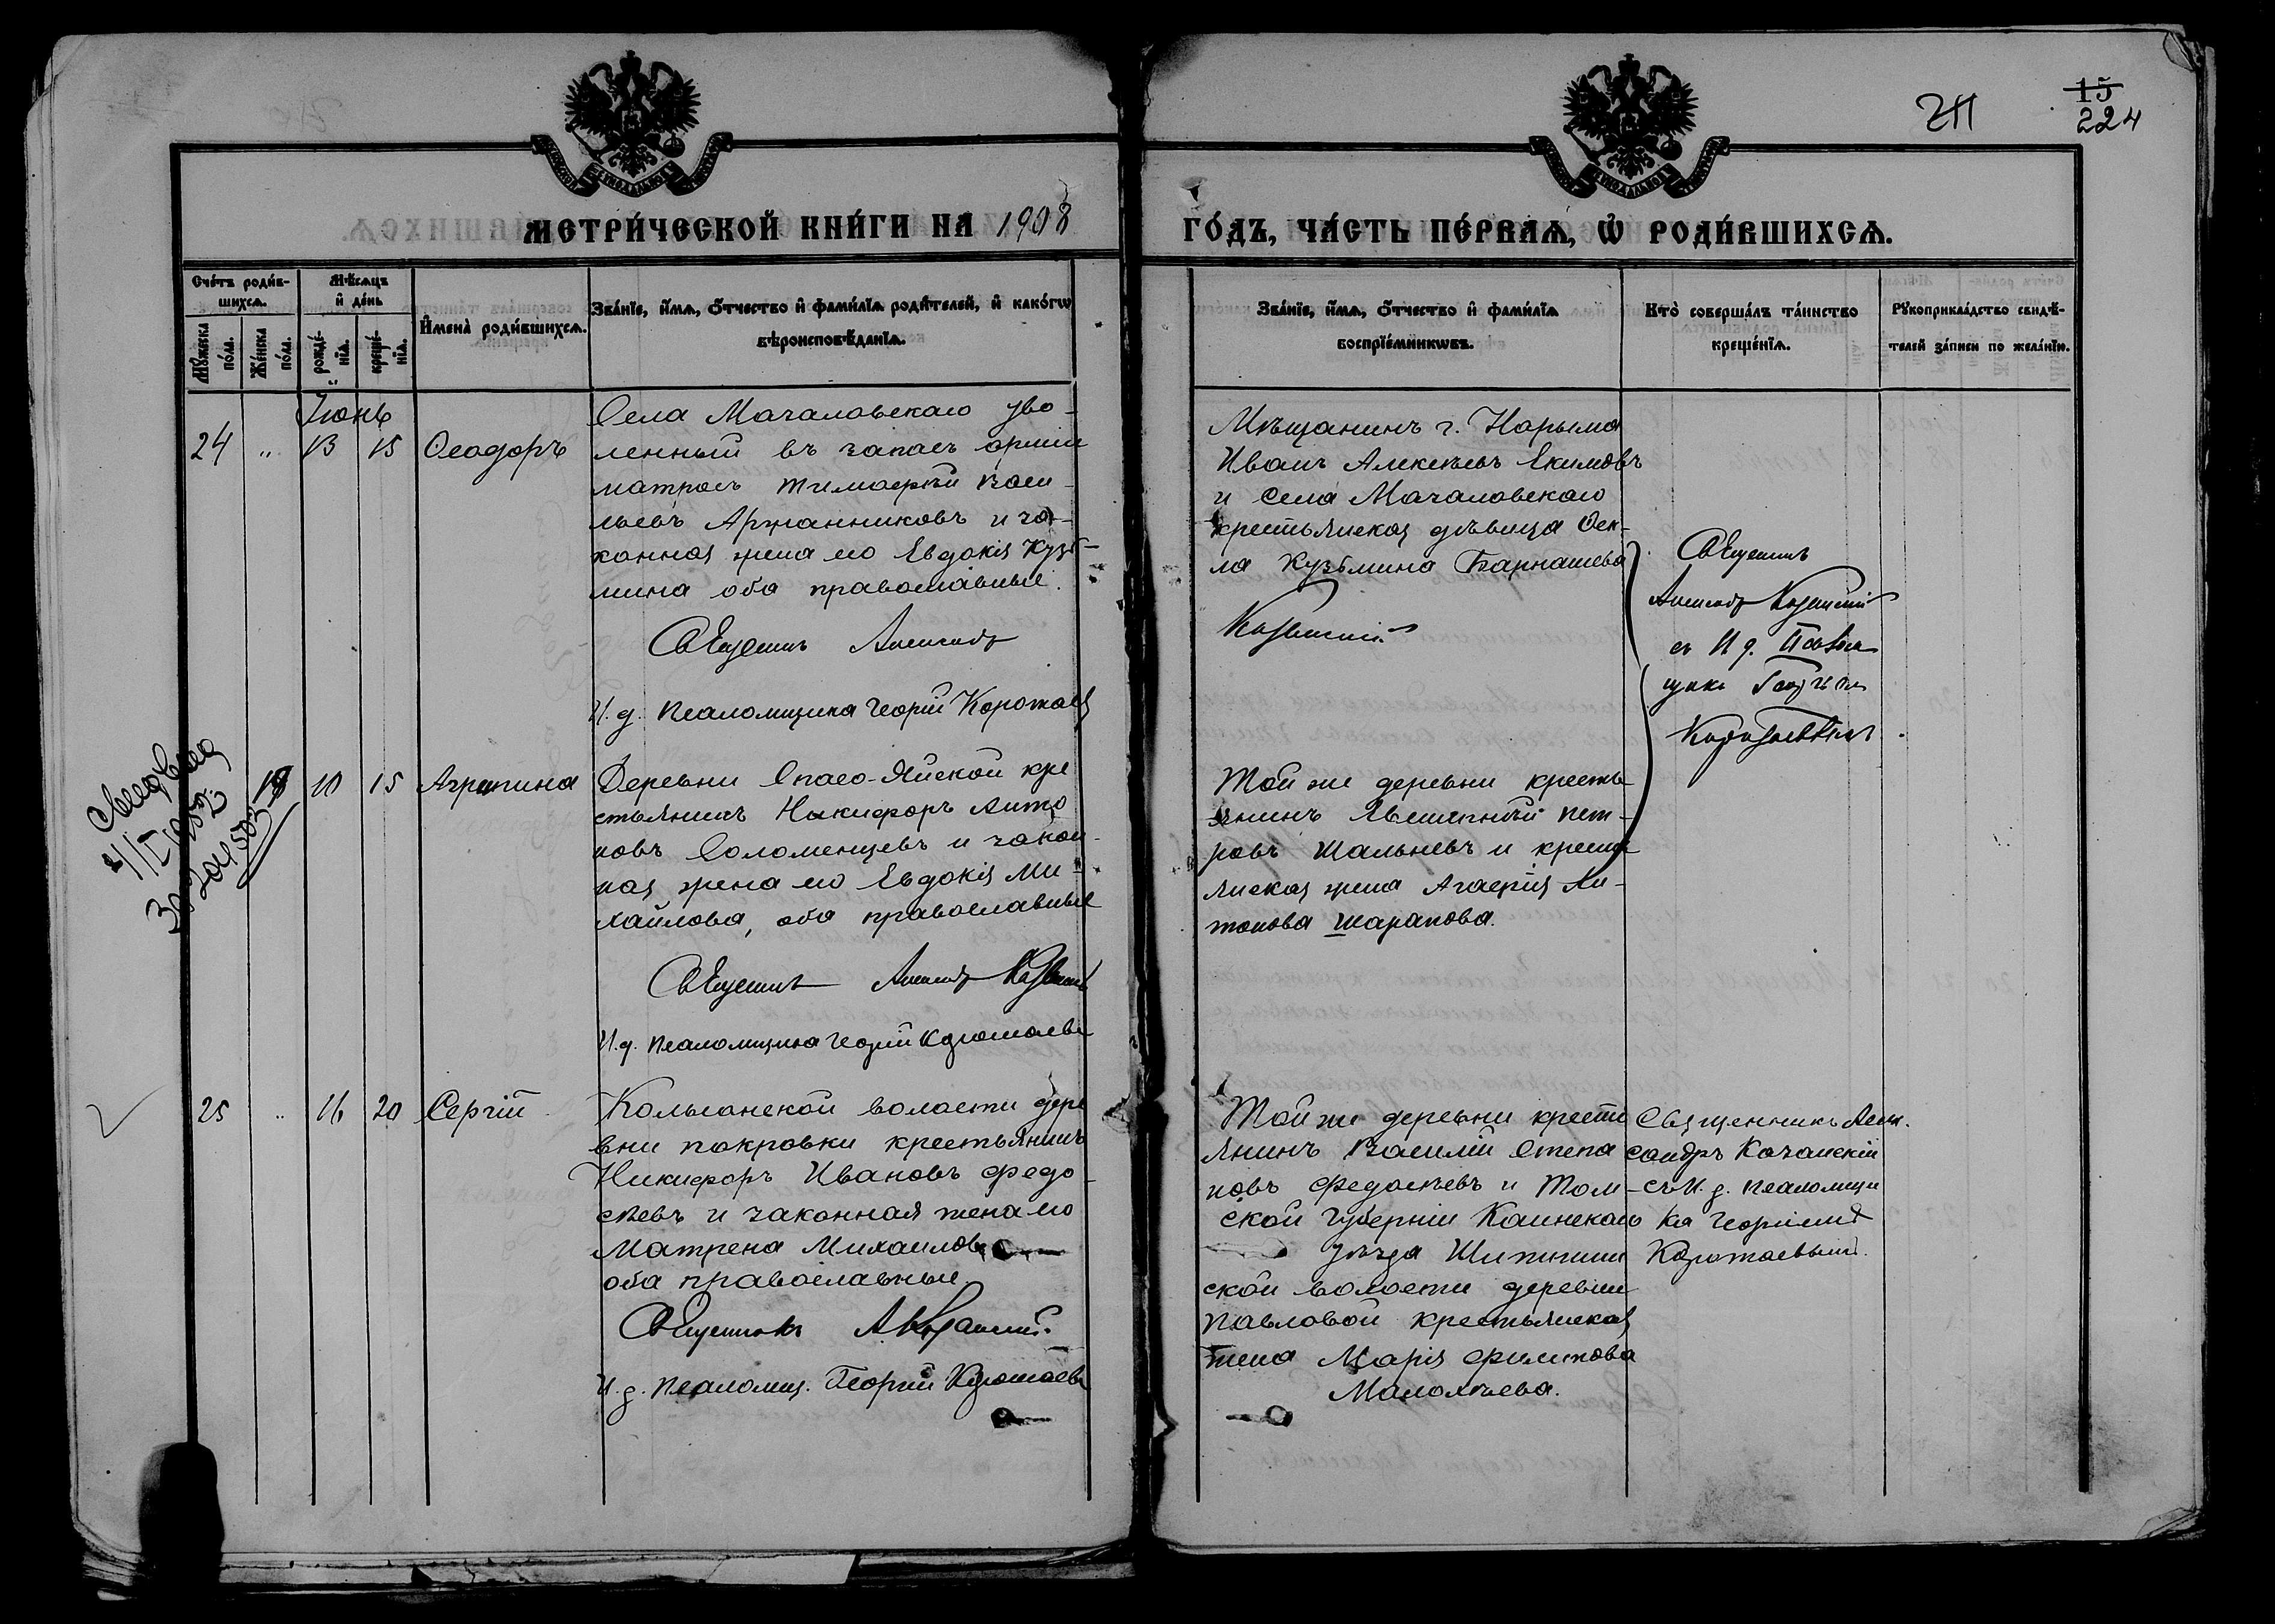 211
15
224
МЕТРИ́ЧЕСКОЙ КНИ́ГИ НА 1908
ГО́ДЪ, ЧА́СТЬ ПЕ́РВАѦ, Ѡ РОДИ́ВШИХСѦ.
Сче́тъ роди́в-
шихсѧ.
Мꙋ́жеска по́ла.
Же́нска по́ла.
Мѣ́сѧцъ
и де́нь
рожде́-
нїѧ.
креще́-
нїѧ.
Имена̀ роди́вшихсѧ.
Зва́нїе, и́мѧ, о́тчество и фами́лїѧ роди́телей, и како́гѡ
вѣроисповѣ́данїѧ.
Зва́нїе, и́мѧ, о́тчество и фами́лїѧ
воспрїе́мникѡвъ.
Кто̀ соверша́лъ та́инство
креще́нїѧ.
Рꙋкоприкла́дство свидѣ́-
телей за́писи по жела́нїю.
Іюнь
24 " 13 15 Ѳеодоръ
Села Мачаловскаго уво-
ленный въ запасъ арміи
матросъ Тимофей Васи-
льевъ Аржанниковъ и за-
конная жена его Евдокія Кузь-
мина оба православные.
Священникъ Александръ
И. д. Псаломщика Георгій Коротаев
Мѣщанинъ г. Нарыма
Иванъ Алексѣевъ Екимовъ
и села Мачаловскаго
крестьянская дѣвица Ѳек-
ла Кузьмина Барнашева
Казанскій
Священникъ
Александръ Казанскій
съ И д. Псалом
щика Георгіем
Коротаевымъ
18 10 15 Агрипина
Деревни Спасо-Яйской кре
стьянинъ Никифоръ Анто
новъ Соломенцевъ и закон-
ная жена его Евдокія Ми-
хайлова, оба православные
Священникъ Александръ Казанскій
И. д. Псаломщика Георгій Коротаевъ
Той же деревни кресть-
янинъ Пет-
ровъ Шальневъ и кресть
янская жена Агафія Ан-
тонова Шарапова.
25 " 16 20 Сергій
Кольонской волости дере
вни Покровки крестьянинъ
Никифоръ Ивановъ Федо-
сѣевъ и законная жена его
Матрена Михаилова
оба православные.
Священникъ А Казанскій.
И. д. Псаломщ. Георгій Коротаевъ
Той же деревни кресть
янинъ Василій Степа
новъ Федосѣевъ и Том-
ской губерніи Каинскаго
уѣзда
ской волости деревни
Павловой крестьянская
жена Марія Филипова
Малолѣева.
Священникъ Алек.
сандръ Казанскій
съ И. д. Псаломщи
ка Георгіемъ
Коротаевымъ.